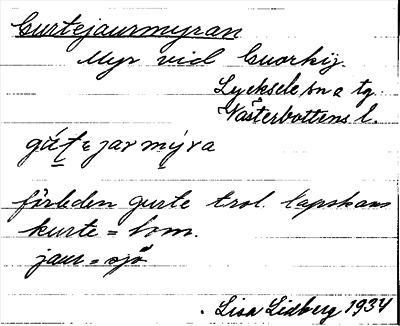 Gurtejaurmyran
Myr vid Guorkij.
Lycksele sn o tg.
Västerbottens l.
gúṭɛjarmýra
förleden gurte trol. lapskans
kurte = lom.
jaur = sjö
Lisa Lidberg 1934